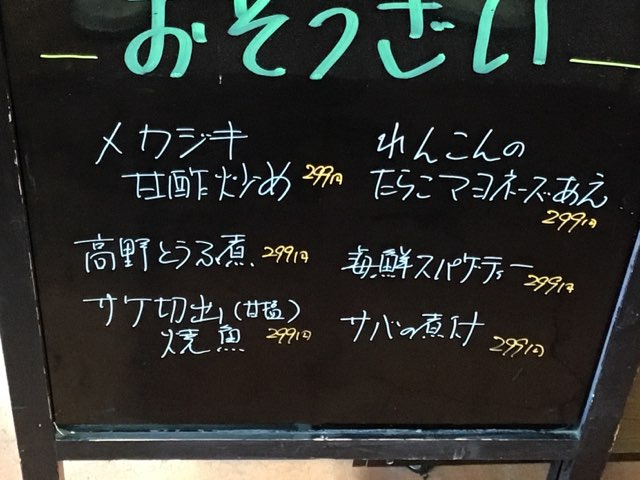 おそうざい
メカジキ
甘酢炒め 299円
れんこんの
たらこマヨネーズあえ
299円
高野とうふ煮 299円
海鮮スパゲティー 299円
サケ切出し(甘塩)
焼魚 299円
サバの煮付 299円